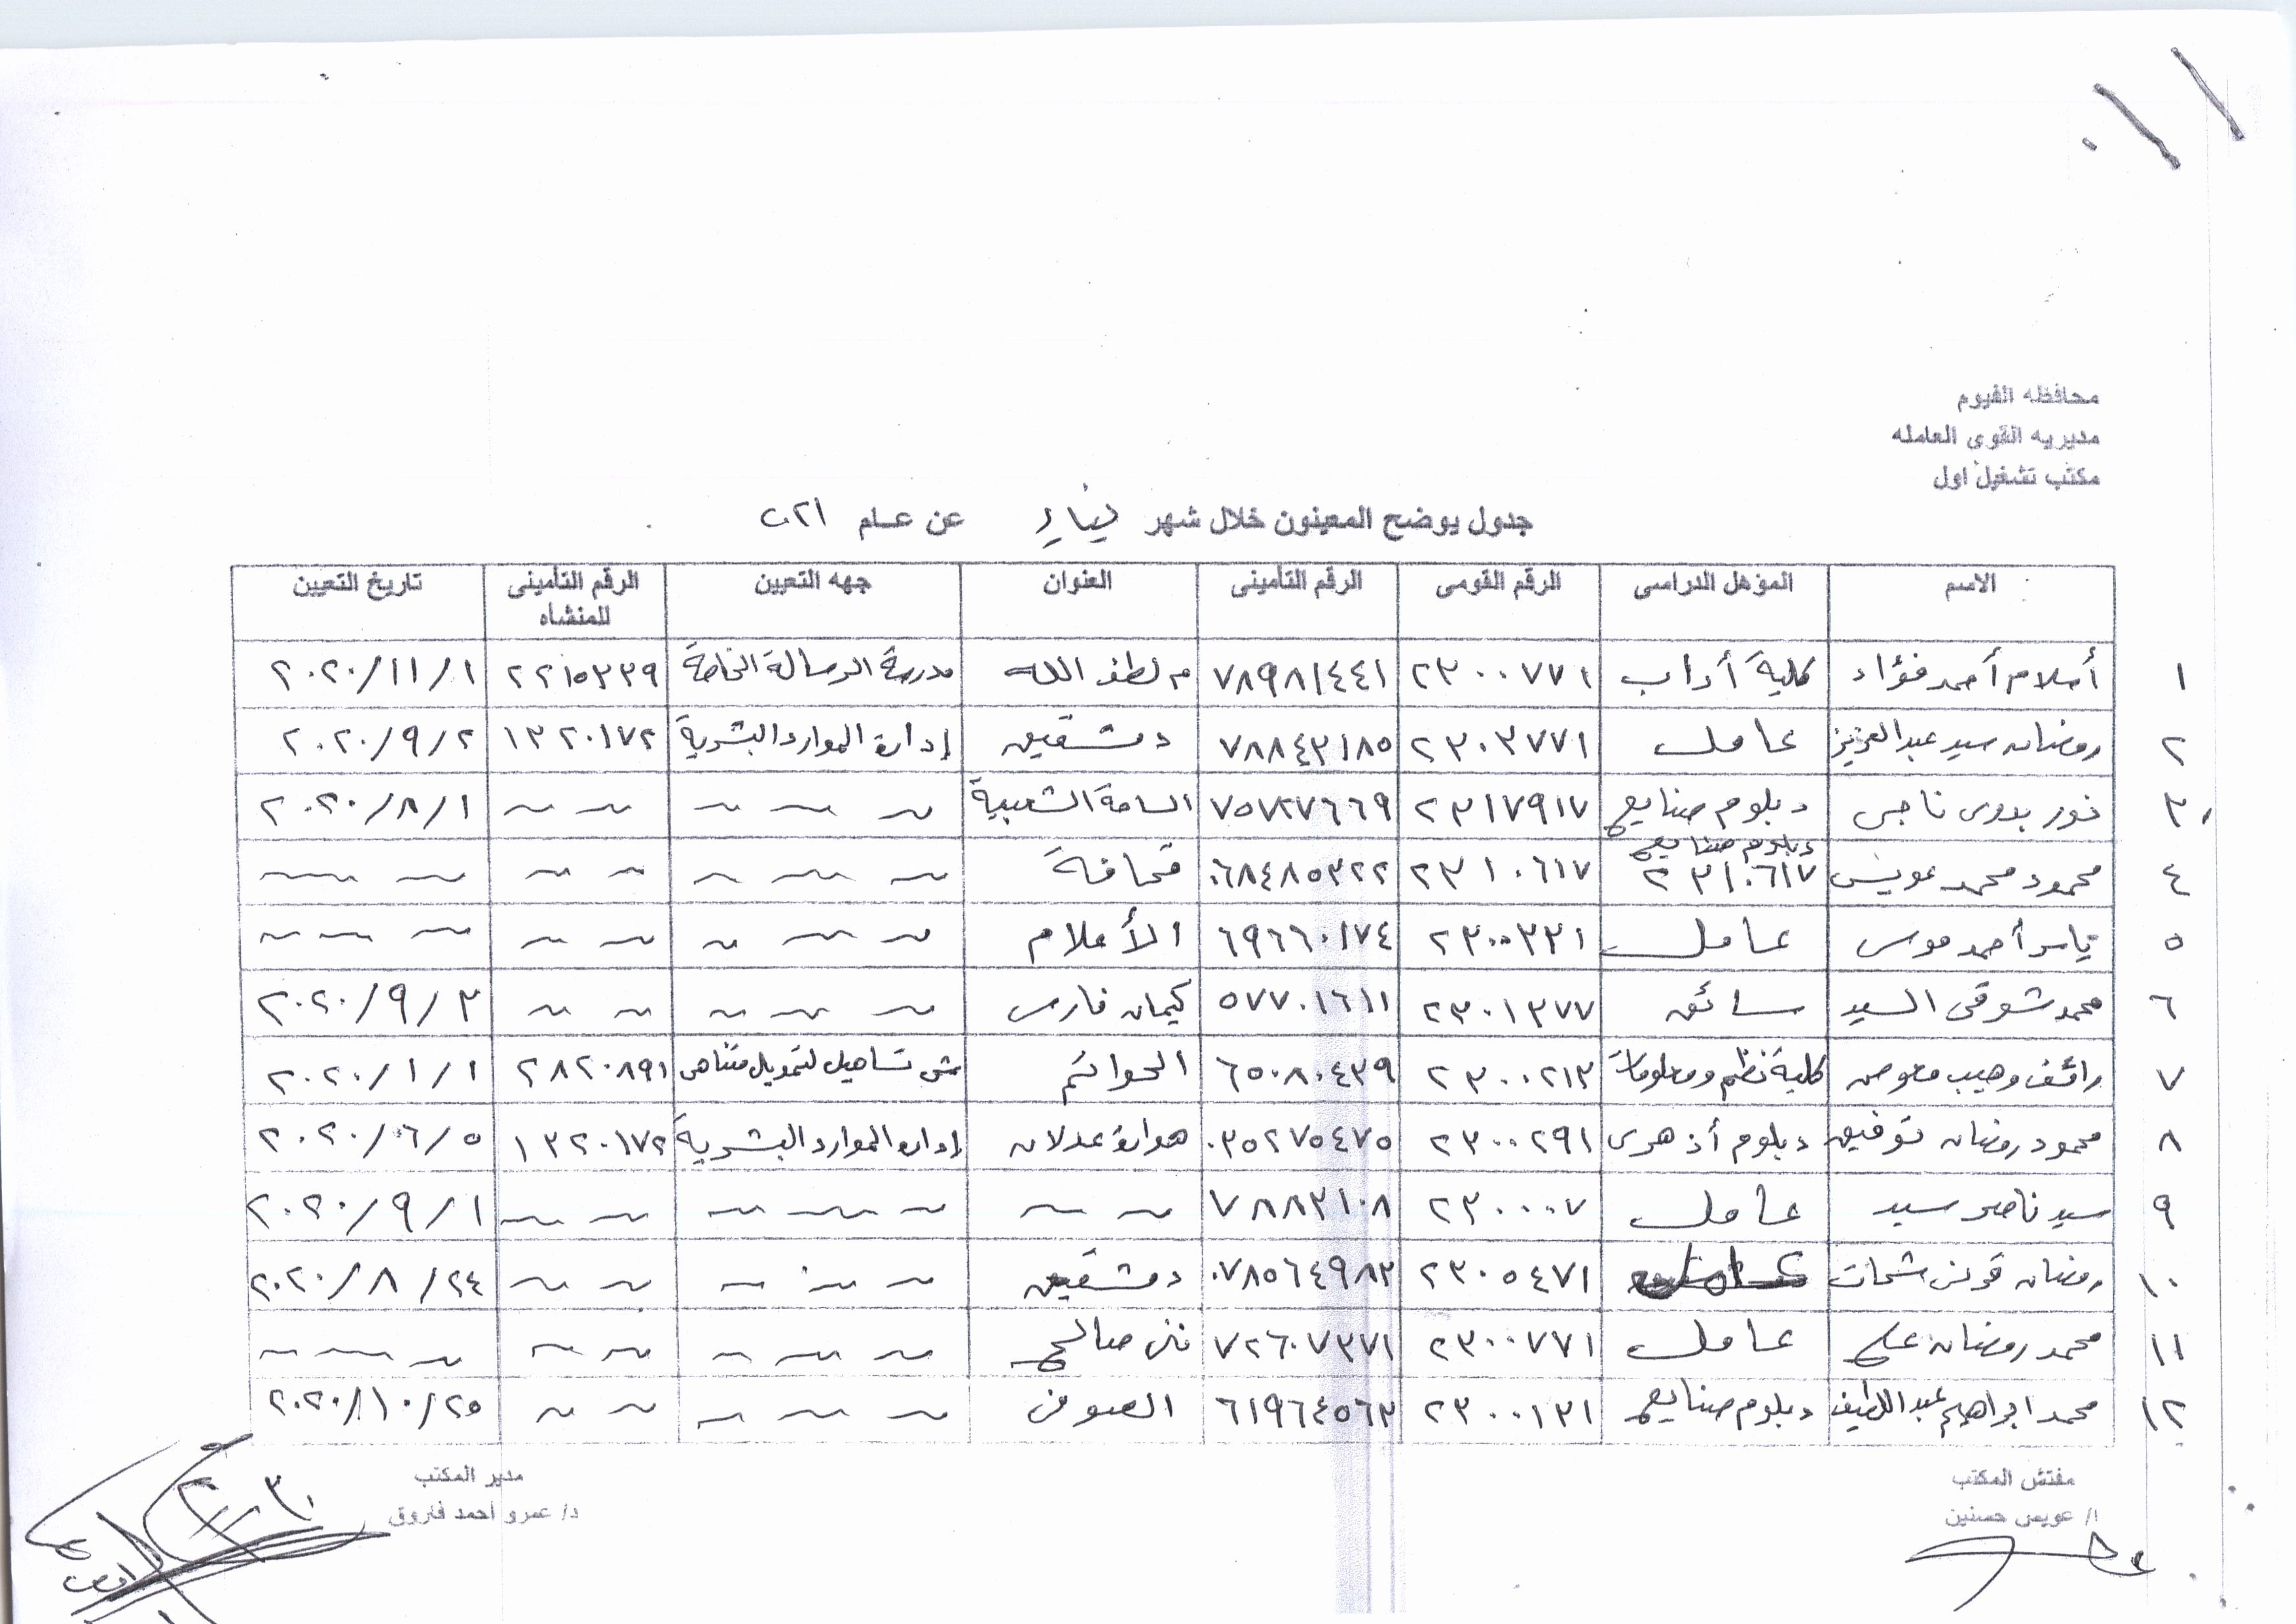 محافظه الفيوم
مديريه القوى العامله
مكتب تشغيل اول
جدول يوضح المعينون خلال شهر يناير عن عام ٢٠٢١
الاسم المؤهل الدراسى الرقم القومى الرقم التأمينى العنوان جهه التعين الرقم التأمينى للمنشاه تاريخ التعين
١ أحلام أحمد فؤاد كلية أداب ٢٣٠٠٧٧١ ٧٨٩٨١٤٤١ م لطف الله مدرسة الرسالة الخاصة ٢٢١٥٣٣٩ ٢٠٢٠/١١/١
٢ رمضان سيد عبد العزيز عامل ٢٣٠٣٧٧١ ٧٨٨٤٣١٨٥ دمشقين إدارة الموارد البشرية ١٣٢٠١٧٢ ٢٠٢٠/٩/٢
٣ نور بدوى ناجى دبلوم صنايع ٢٣١٧٩١٧ ٧٥٧٢٧٦٦٩ الساحة الشعبية ~ ~ ~ ~ ~ ٢٠٢٠/٨/١
٤ محمود محمد عويس دبلوم صنايع ٢٣١٠٦١٧ ٢٣١٠٦١٧ ٠٦٨٤٨٥٣٢٢ قحافة ~ ~ ~ ~ ~ ~ ~
٥ ياسر أحمد موسى عامل ٢٣٠٠٣٣١ ٦٩٦٦٠١٧٤ الأعلام ~ ~ ~ ~ ~ ~ ~ ~
٦ محمد شوقى السيد سائق ٢٣٠١٣٧٧ ٥٧٧٠١٦١١ كيمان فارس ~ ~ ~ ~ ~ ٢٠٢٠/٩/٣
٧ رائف وهيب معوض كلية نظم ومعلومات ٢٣٠٠٢١٣ ٦٥٠٨٠٤٣٩ الحواتم ش تساهيل لتمويل متناهى ٢٨٢٠٨٩١ ٢٠٢٠/١/١
٨ محمود رمضان توفيق دبلوم أزهرى ٢٣٠٠٢٩١ ٠٣٥٢٧٥٤٧٥ هوارة عدلان إدارة الموارد البشرية ١٣٢٠١٧٢ ٢٠٢٠/٦/٥
٩ سيد ناصر سيد عامل ٢٣٠٠٠٠٧ ٧٨٨٣١٠٨ ~ ~ ~ ~ ~ ~ ~ ٢٠٢٠/٩/١
١٠ رمضان قرنى شحات عامل ٢٣٠٥٤٧١ ٠٧٨٥٦٤٩٨٣ دمشقين ~ ~ ~ ~ ~ ٢٠٢٠/٨/٢٤
١١ محمد رمضان على عامل ٢٣٠٠٧٧١ ٧٢٦٠٧٣٧١ صالح ~ ~ ~ ~ ~ ~ ~ ~
١٢ محمد ابراهيم عبد اللطيف دبلوم صنايع ٢٣٠٠١٣١ ٦١٩٦٤٥٦٣ الصوفى ~ ~ ~ ~ ~ ٢٠٢٠/١٠/٢٥
مفتش المكتب مدير المكتب
ا/ عويس حسنين د/ عمرو احمد فاروق